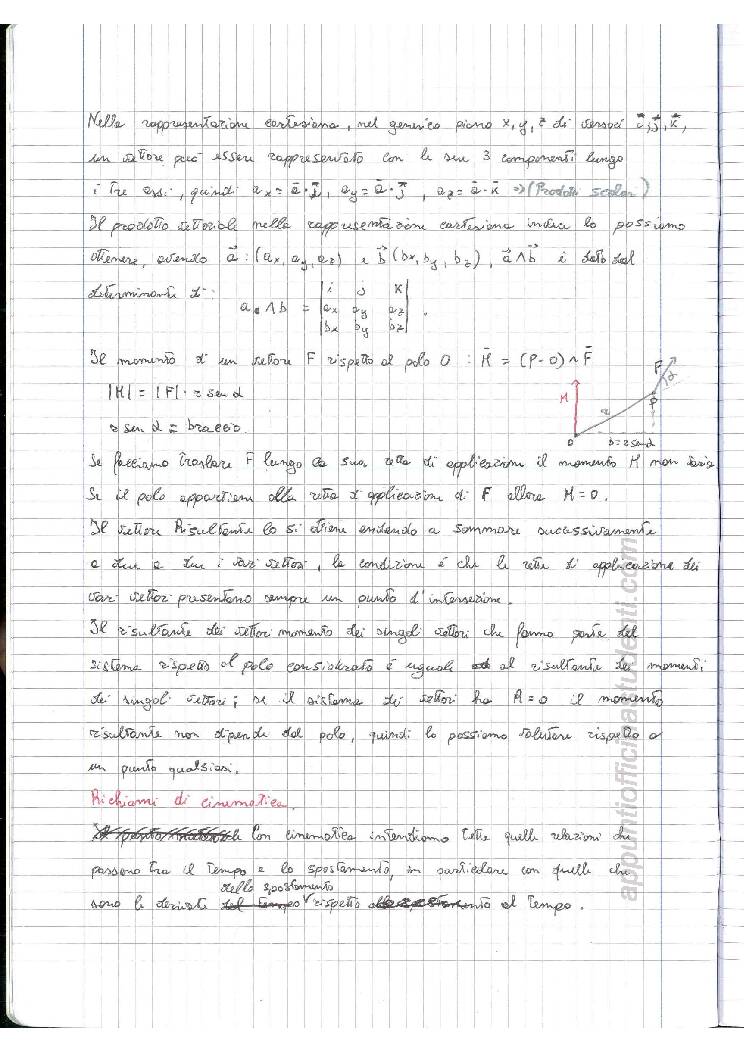 Nella rappresentazione cartesiana, nel generico piano x, y, z di versori i⃗, j⃗, k⃗,
un vettore può essere rappresentato con le sue 3 componenti lungo
i tre assi, quindi ax = ā·i̅, ay = ā·j̅, az = ā·k̅ ⇒ (Prodotti scalari)
Il prodotto vettoriale nella rappresentazione cartesiana indica lo possiamo
ottenere, avendo a⃗ : (ax, ay, az) e b⃗ (bx, by, bz), a⃗ ∧ b⃗ è dato dal
determinante di :
a ∧ b = | i j k |
| ax ay az | .
| bx by bz |
Il momento di un vettore F rispetto al polo O : M̄ = (P-O) ∧ F̄
|M| = |F| · r sen α
r sen α = braccio
F
α
P
M
r
O
b = r sen α
Se facciamo traslare F lungo la sua retta di applicazione il momento M non varia
Se il polo appartiene alla retta d'applicazione di F allora M = 0.
Il vettore Risultante lo si ottiene andando a sommare successivamente
a due a due i vari vettori, la condizione è che le rette di applicazione dei
vari vettori presentano sempre un punto d'intersezione.
Il risultante dei vettori momento dei singoli vettori che fanno parte del
sistema rispetto al polo considerato è uguale al risultante dei momenti
dei singoli vettori; se il sistema dei vettori ha R = 0 il momento
risultante non dipende dal polo, quindi lo possiamo valutare rispetto a
un punto qualsiasi.
Richiami di cinematica.
Con cinematica intendiamo tutte quelle relazioni che
passano tra il tempo e lo spostamento, in particolare con quelle che
dello spostamento
sono le derivate del tempo rispetto al tempo.
appuntiofficinastudenti.com